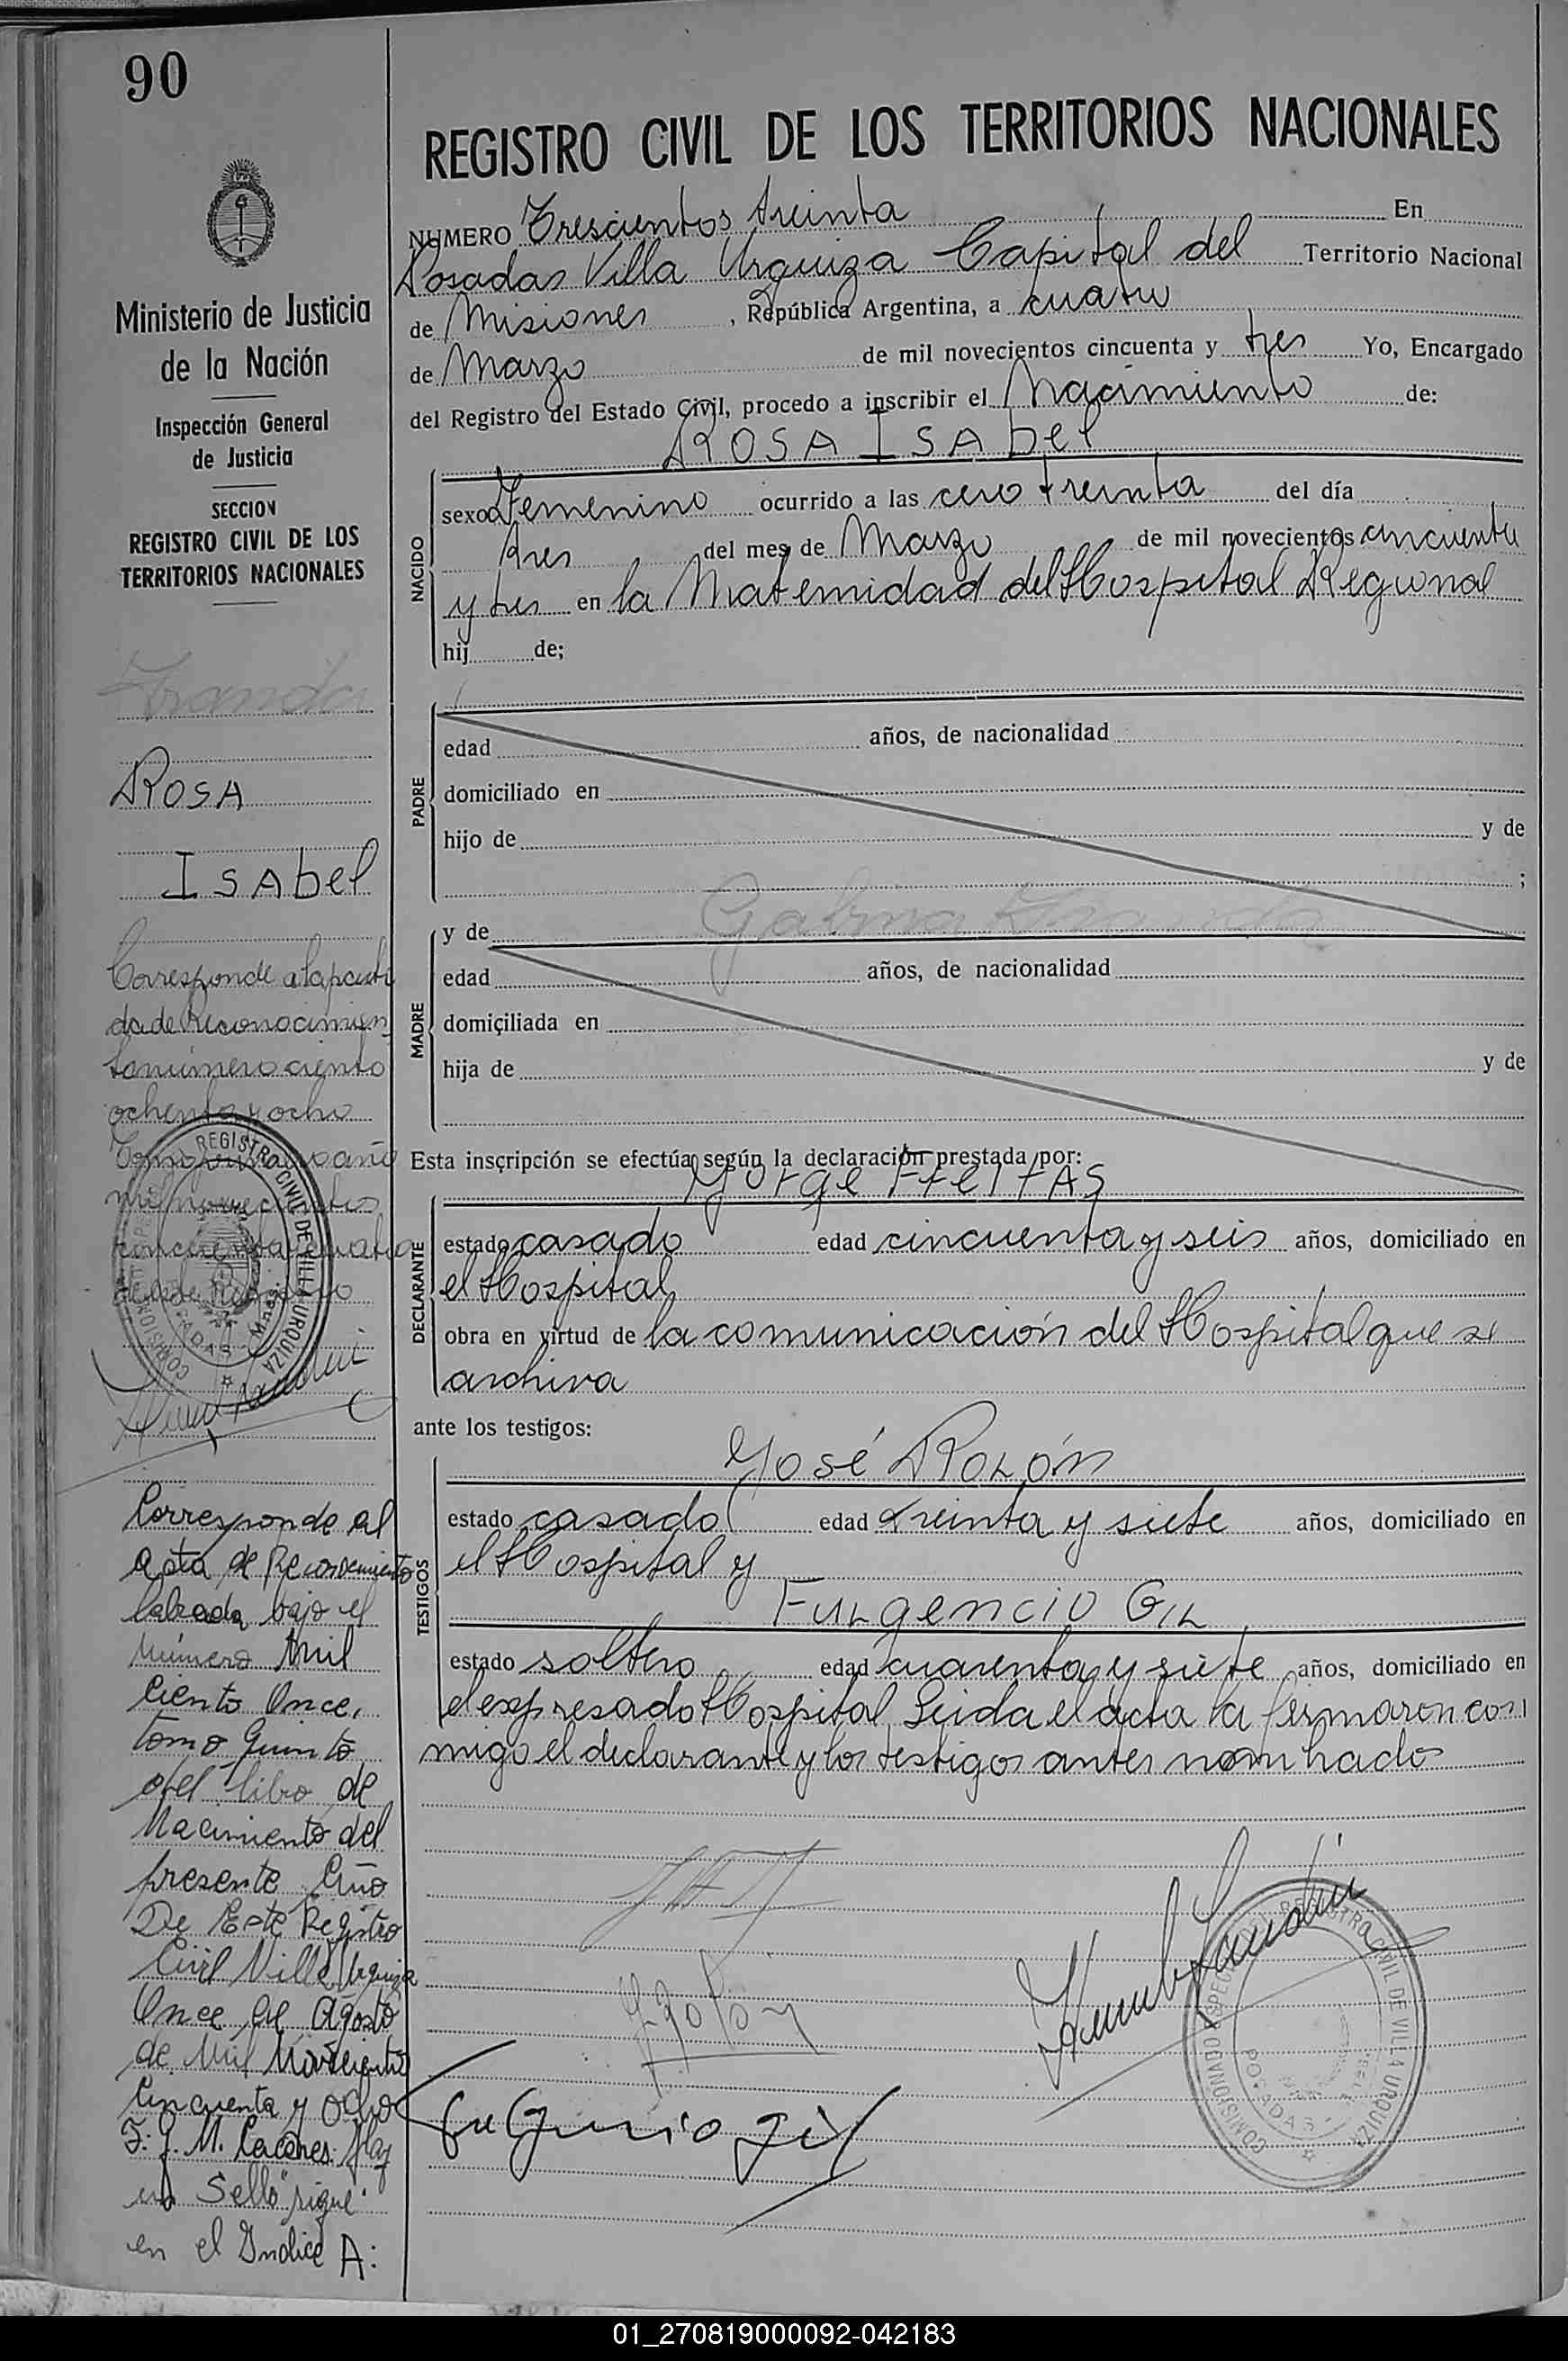 90
Ministerio de Justicia
de la Nación
Inspección General
de Justicia
SECCION
REGISTRO CIVIL DE LOS
TERRITORIOS NACIONALES
Aranda
ROSA
ISAbel
Corresponde a la parti
da de Reconocimien
to número ciento
ochenta y ocho
Tomo primero año
mil novecientos
cincuenta y cuatro
de este Registro
Corresponde al
acta de Reconocimiento
labrada bajo el
número Mil
Ciento Once,
tomo quinto
del libro de
Nacimiento del
presente Año
De Este Registro
Civil Villa Urquiza
Once de Agosto
de Mil Novecientos
Cincuenta y Ocho
F: J. M. Cáceres. Hay
un Sello "sigue"
en el Indice A:
REGISTRO CIVIL DE LOS TERRITORIOS NACIONALES
NUMERO Trescientos treinta En
Posadas Villa Urquiza Capital del Territorio Nacional
de Misiones, República Argentina, a cuatro
de Marzo de mil novecientos cincuenta y tres Yo, Encargado
del Registro del Estado Civil, procedo a inscribir el Nacimiento de:
ROSA ISAbel
NACIDO
sexo Femenino ocurrido a las cero treinta del día
tres del mes de Marzo de mil novecientos cincuenta
y tres en la Maternidad del Hospital Regional
hij de;
PADRE
edad años, de nacionalidad
domiciliado en
hijo de y de
;
MADRE
y de Galvina Aranda
edad años, de nacionalidad
domiciliada en
hija de y de
Esta inscripción se efectúa según la declaración prestada por:
Jorge FreitAS
DECLARANTE
estado casado edad cincuenta y seis años, domiciliado en
el Hospital
obra en virtud de la comunicación del Hospital que se
archiva
ante los testigos:
José Rolón
TESTIGOS
estado casado edad treinta y siete años, domiciliado en
el Hospital y
Fulgencio Gil
estado soltero edad cuarenta y siete años, domiciliado en
el expresado Hospital Leida el acta la firmaron con
migo el declarante y los testigos antes nombrados
Fulgencio gil
REGISTRO CIVIL DE VILLA URQUIZA
POSADAS
01_270819000092-042183